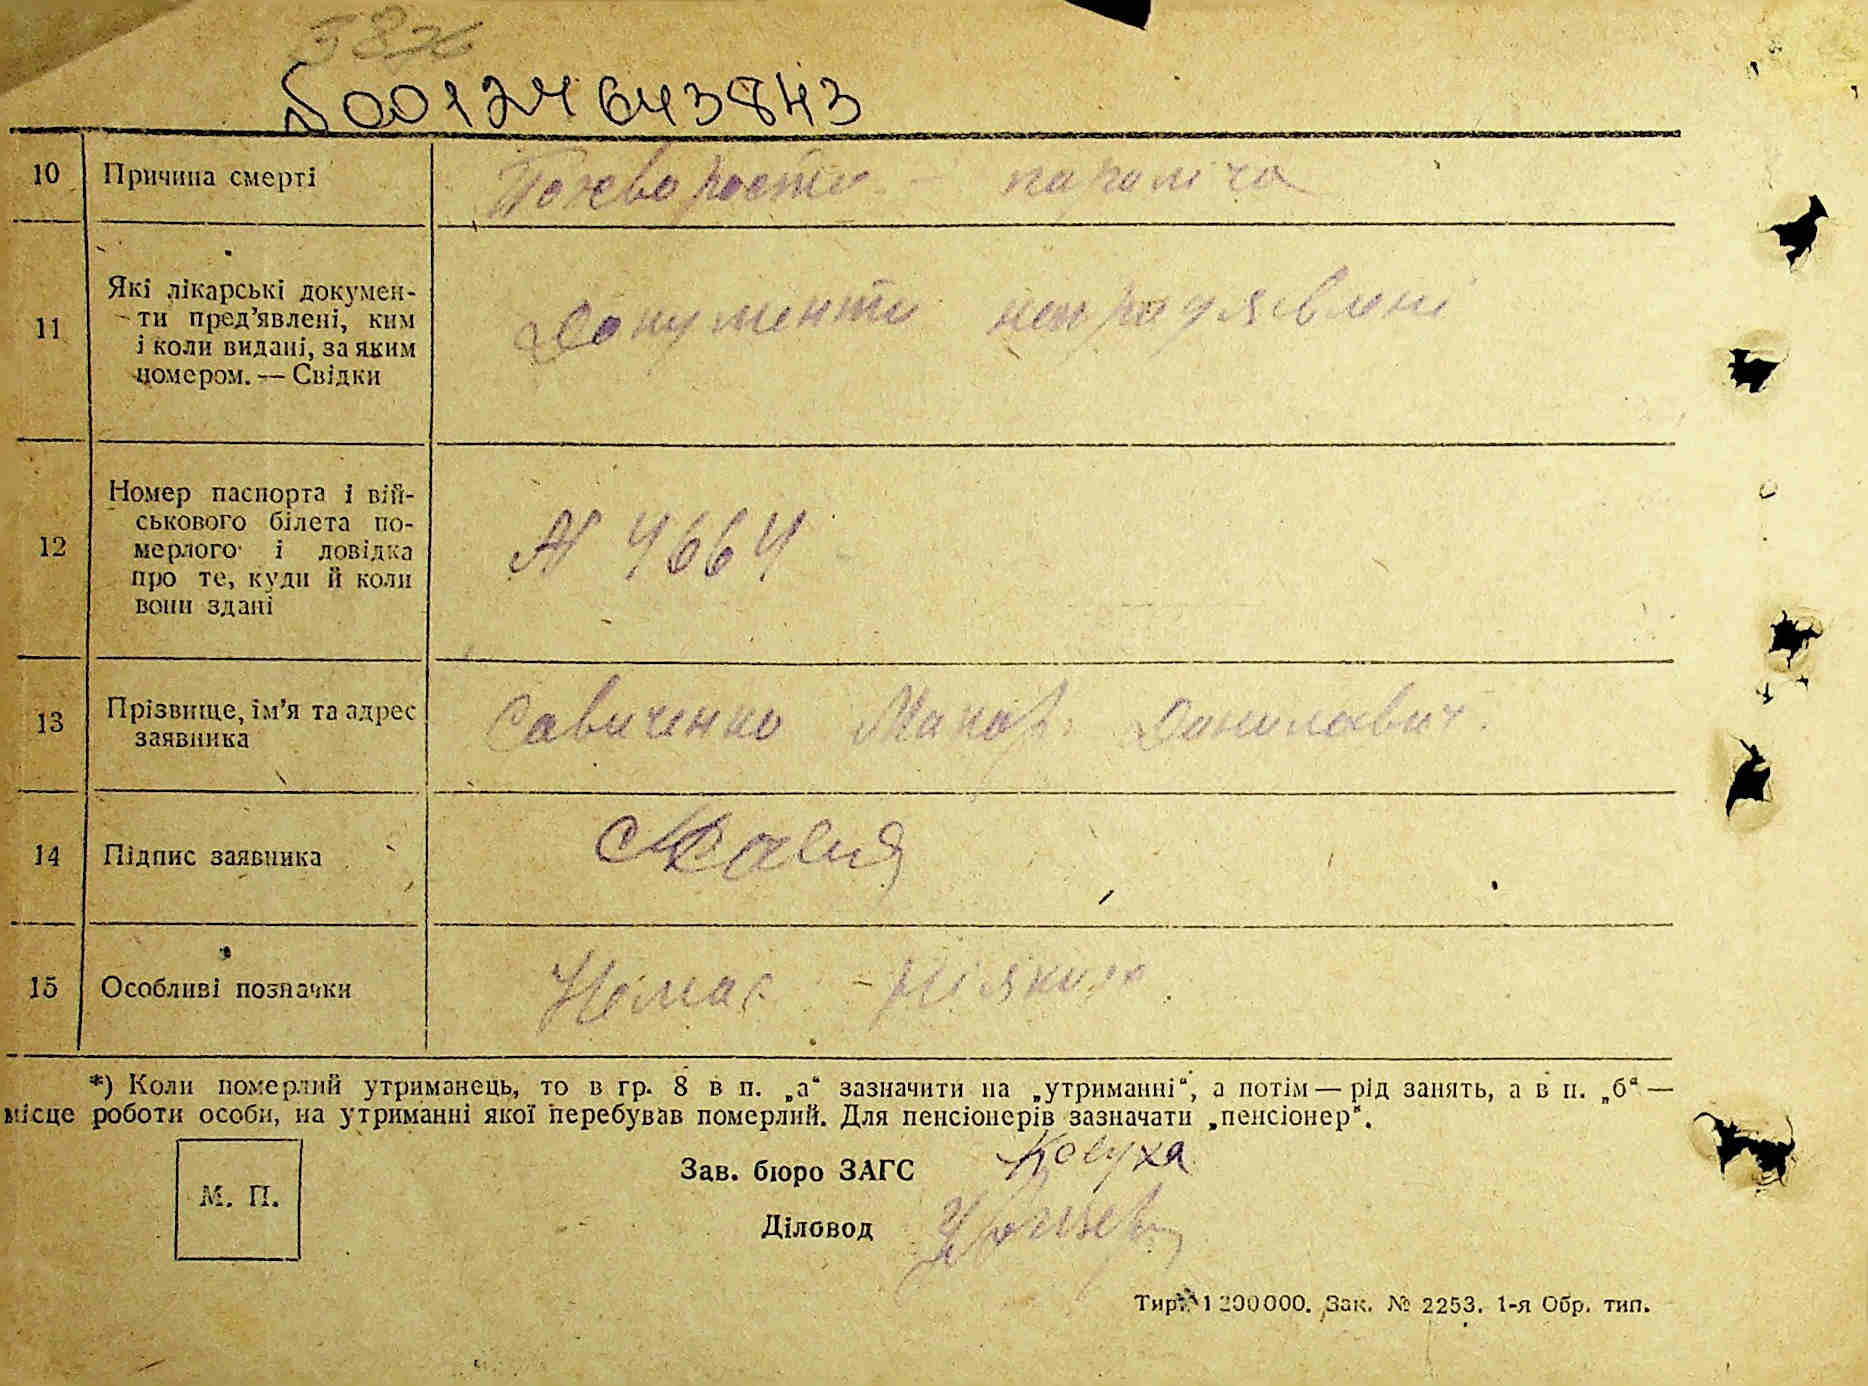 00124643843
10 Причина смерті параліча
11 Які лікарські докумен-
ти пред’явлені, ким
і коли видані, за яким
номером. — Свідки
Документи непредявлені
12 Номер паспорта і вій-
ськового білета по-
мерлого і довідка
про те, куди й коли
вони здані
№ 4664
13 Прізвище, ім’я та адрес
заявника
Савиченко Макар Данилович.
14 Підпис заявника
15 Особливі позначки Немає - ніяких
*) Коли померлий утриманець, то в гр. 8 в п. „а“ зазначити на „утриманні“, а потім — рід занять, а в п. „б“ —
місце роботи особи, на утриманні якої перебував померлий. Для пенсіонерів зазначати „пенсіонер“.
М. П.
Зав. бюро ЗАГС
Діловод
Тир. 1 200 000. Зак. № 2253. 1-я Обр. тип.